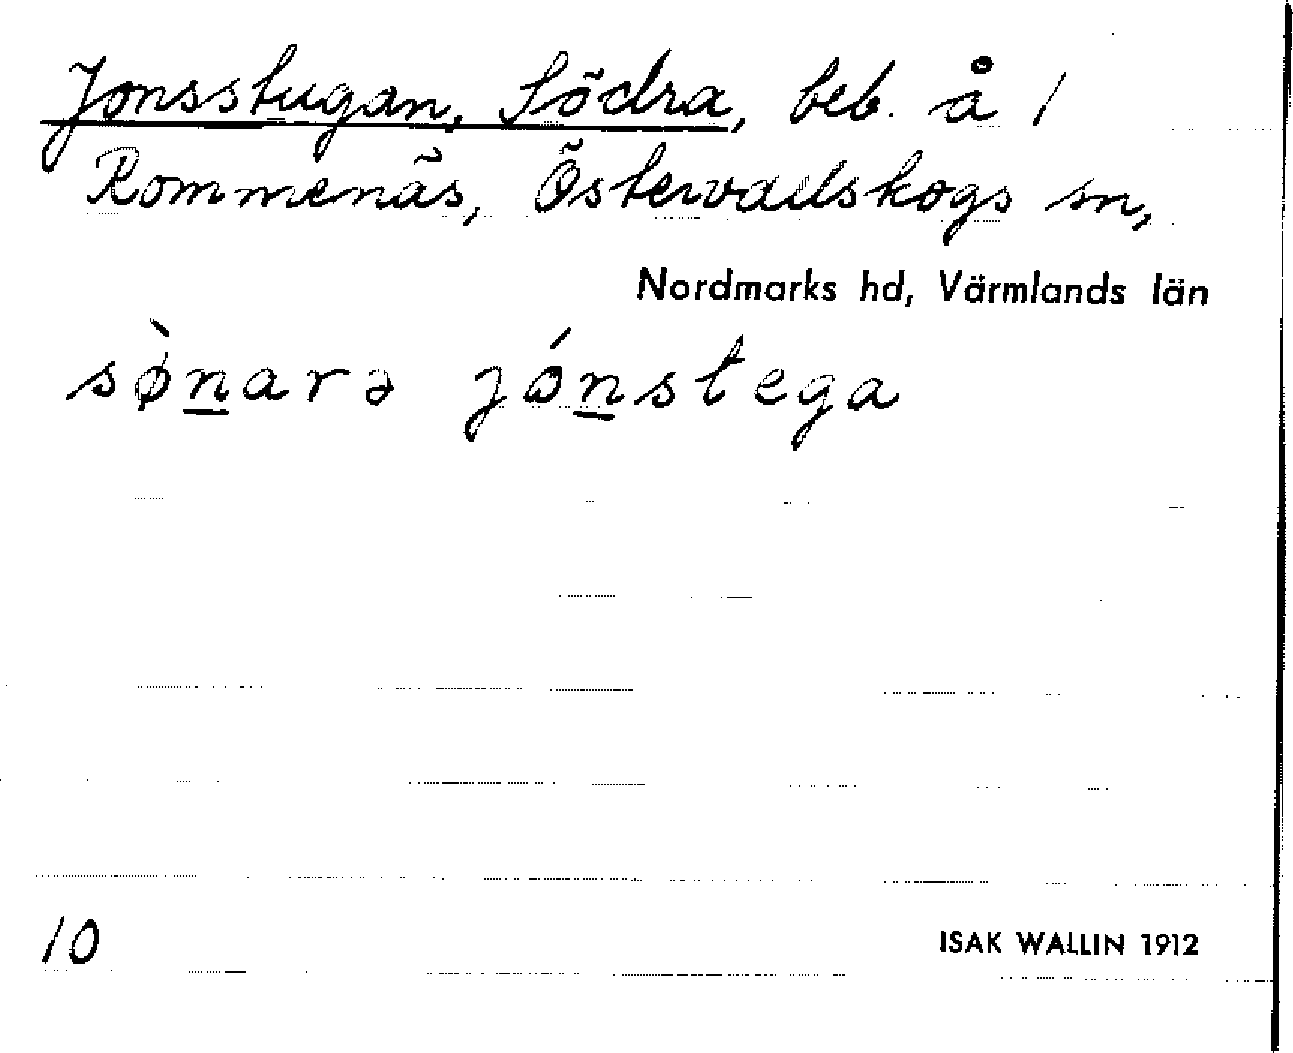 Jonsstugan, Södra, beb. å 1
Rommenäs, Östervallskogs sn,
Nordmarks hd, Värmlands län
sø̀n̲arə jón̲stega
10
ISAK WALLIN 1912